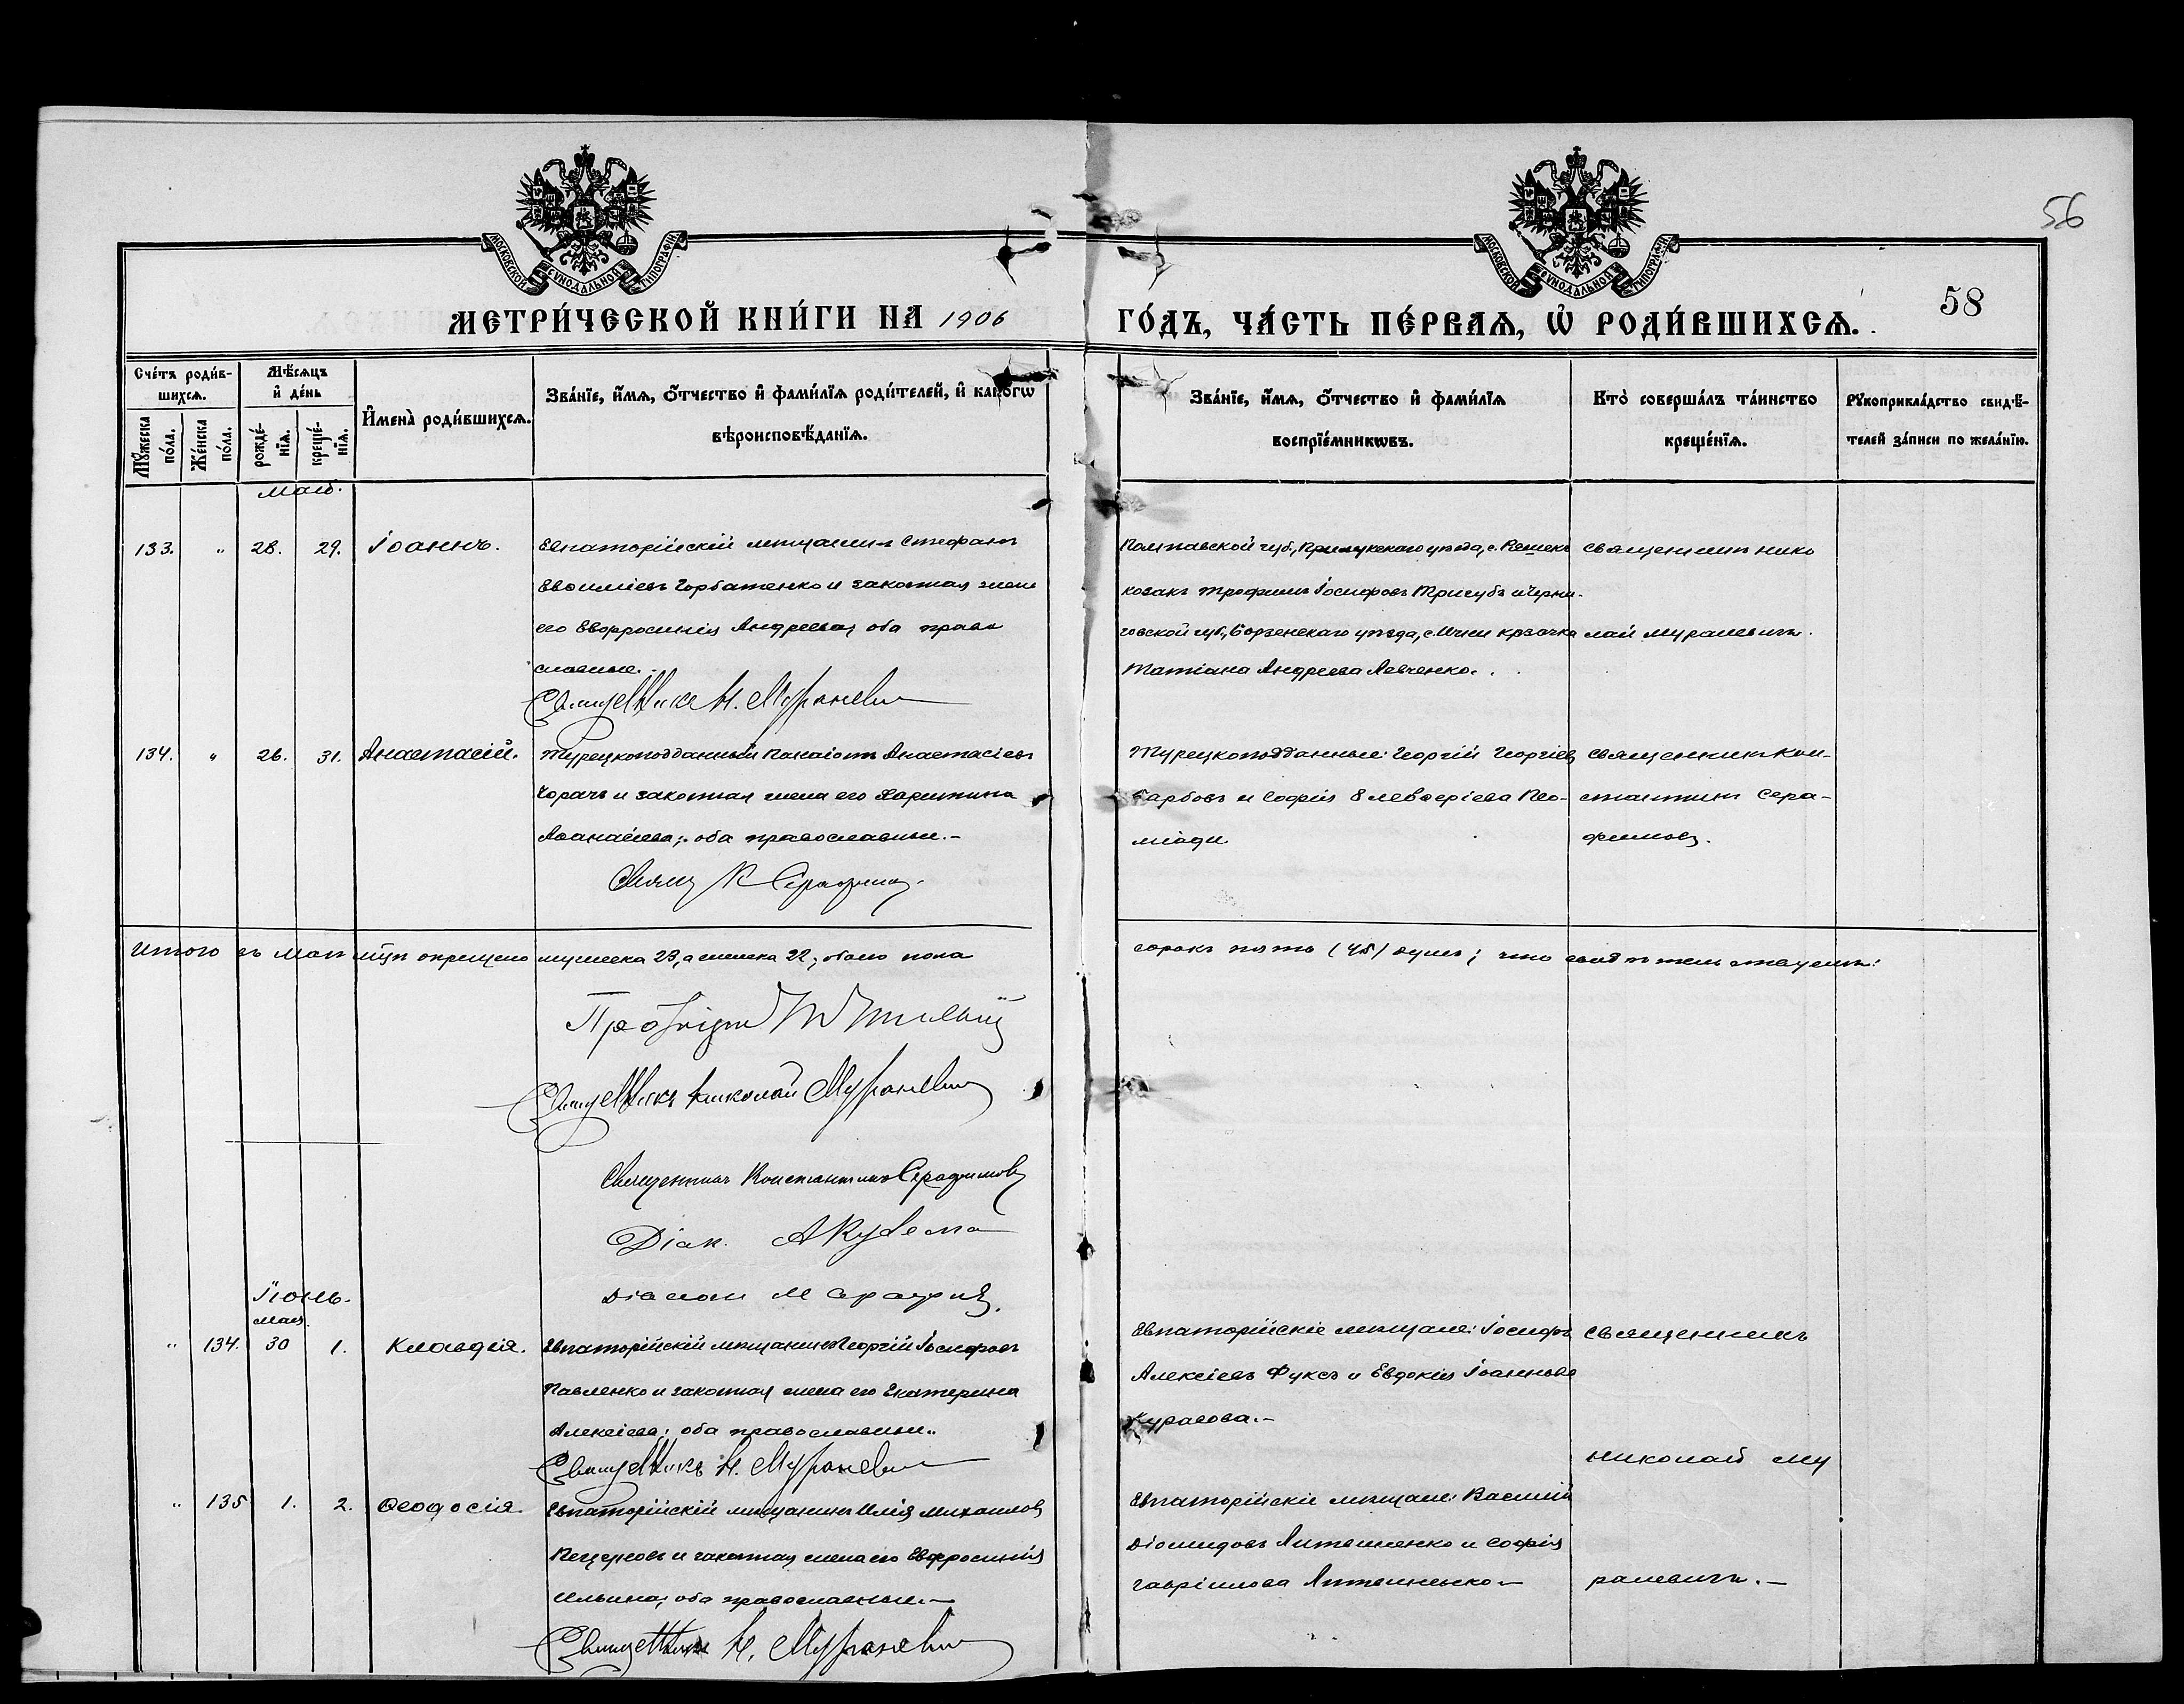 56
МОСКОВСКОЙ СѴНОДАЛЬНОЙ ТИПОГРАФІИ
МОСКОВСКОЙ СѴНОДАЛЬНОЙ ТИПОГРАФІИ
МЕТРИ́ЧЕСКОЙ КНИ́ГИ НА 1906
ГО́ДЪ, ЧА́СТЬ ПЕ́РВАѦ, Ѡ҆ РОДИ́ВШИХСѦ.
58
Сче́тъ роди́в-
шихсѧ.
Мꙋ́жеска по́ла.
Же́нска по́ла.
Мѣ́сѧцъ
и҆ де́нь
рожде́-
нїѧ.
креще́-
нїѧ.
И҆мена̀ роди́вшихсѧ.
Зва́нїе, и҆́мѧ, ѻ҆́тчество и҆ фами́лїѧ роди́телей, и҆ како́гѡ
вѣроисповѣ́данїѧ.
Зва́нїе, и҆́мѧ, ѻ҆́тчество и҆ фами́лїѧ
воспрїе́мникѡвъ.
Кто̀ соверша́лъ та́инство
креще́нїѧ.
Рꙋкоприкла́дство свидѣ́-
телей за́писи по жела́нїю.
Май.
133. " 28. 29. Іоаннъ.
Евпаторійскій мѣщанинъ Стефанъ
Евѳиміевъ Горбатенко и законная жена
его Евфросинія Андреева; оба право
славные.
Священникъ Н. Мураневичъ
Полтавской губ., Прилукскаго уѣзда, с.
козакъ Трофимъ Іосифовъ Тригубъ и Черни-
говской губ., Борзенскаго уѣзда, с. козачка
Татіана Андреева Левченко.
Священникъ Нико
лай Мураневичъ.
134. " 26. 31. Анастасій.
Турецкоподданный Панаіотъ Анастасіевъ
Чорачъ и законная жена его Харитина
Аѳанасіева; оба православные.-
Свящ К Серафимовъ.
Турецкоподданные: Георгій Георгіевъ
Карбовъ и Софія Елевѳеріева Пео-
міади.
Священникъ Кон-
стантинъ Сера-
фимовъ.
Итого въ маѣ мцѣ окрещено мужеска 23, а женска 22; обоего пола
сорокъ пять (45) душъ; что свидѣтельствуемъ:
Священникъ Николай Мураневичъ
Священникъ Константинъ Серафимовъ
Діак.
Діаконъ
Іюнь.
мая.
" 134. 30 1. Клавдія.
Евпаторійскій мѣщанинъ Георгій Іосифовъ
Павленко и законная жена его Екатерина
Алексіева; оба православные.
Священникъ Н. Мураневичъ
Евпаторійскіе мѣщане: Іосифъ
Алексіевъ Фуксъ и Евдокія Іоаннова
Курасова.-
Священникъ
Николай Му
" 135 1. 2. Ѳеодосія.
Евпаторійскій мѣщанинъ Илія Михаиловъ
Пещуровъ и законная жена его Евфросинія
Ильина; оба православные.-
Священникъ Н. Мураневичъ
Евпаторійскіе мѣщане: Василій
Діомидовъ Литвиненко и Софія
Гавріилова Литвиненко.-
раневичъ.-